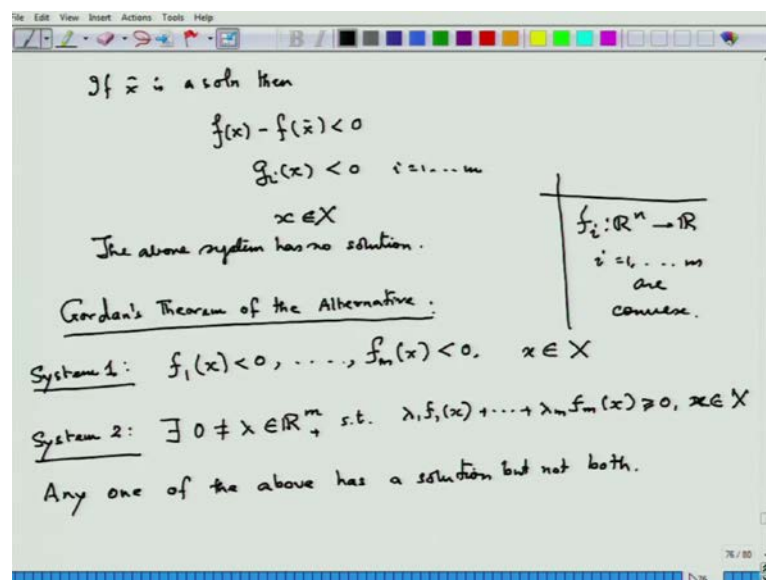 File Edit View Insert Actions Tools Help
If x̄ is a soln then
f(x) - f(x̄) < 0
g_i(x) < 0 i = 1, ... m
x ∈ X
The above system has no solution.
f_i : ℝⁿ → ℝ
i = 1, ... m
are
convex.
Gordan's Theorem of the Alternative :
System 1: f₁(x) < 0, ....., f_m(x) < 0, x ∈ X
System 2: ∃ 0 ≠ λ ∈ ℝ₊ᵐ s.t. λ₁f₁(x) + ··· + λ_m f_m(x) ≥ 0, x ∈ X
Any one of the above has a solution but not both.
76 / 80